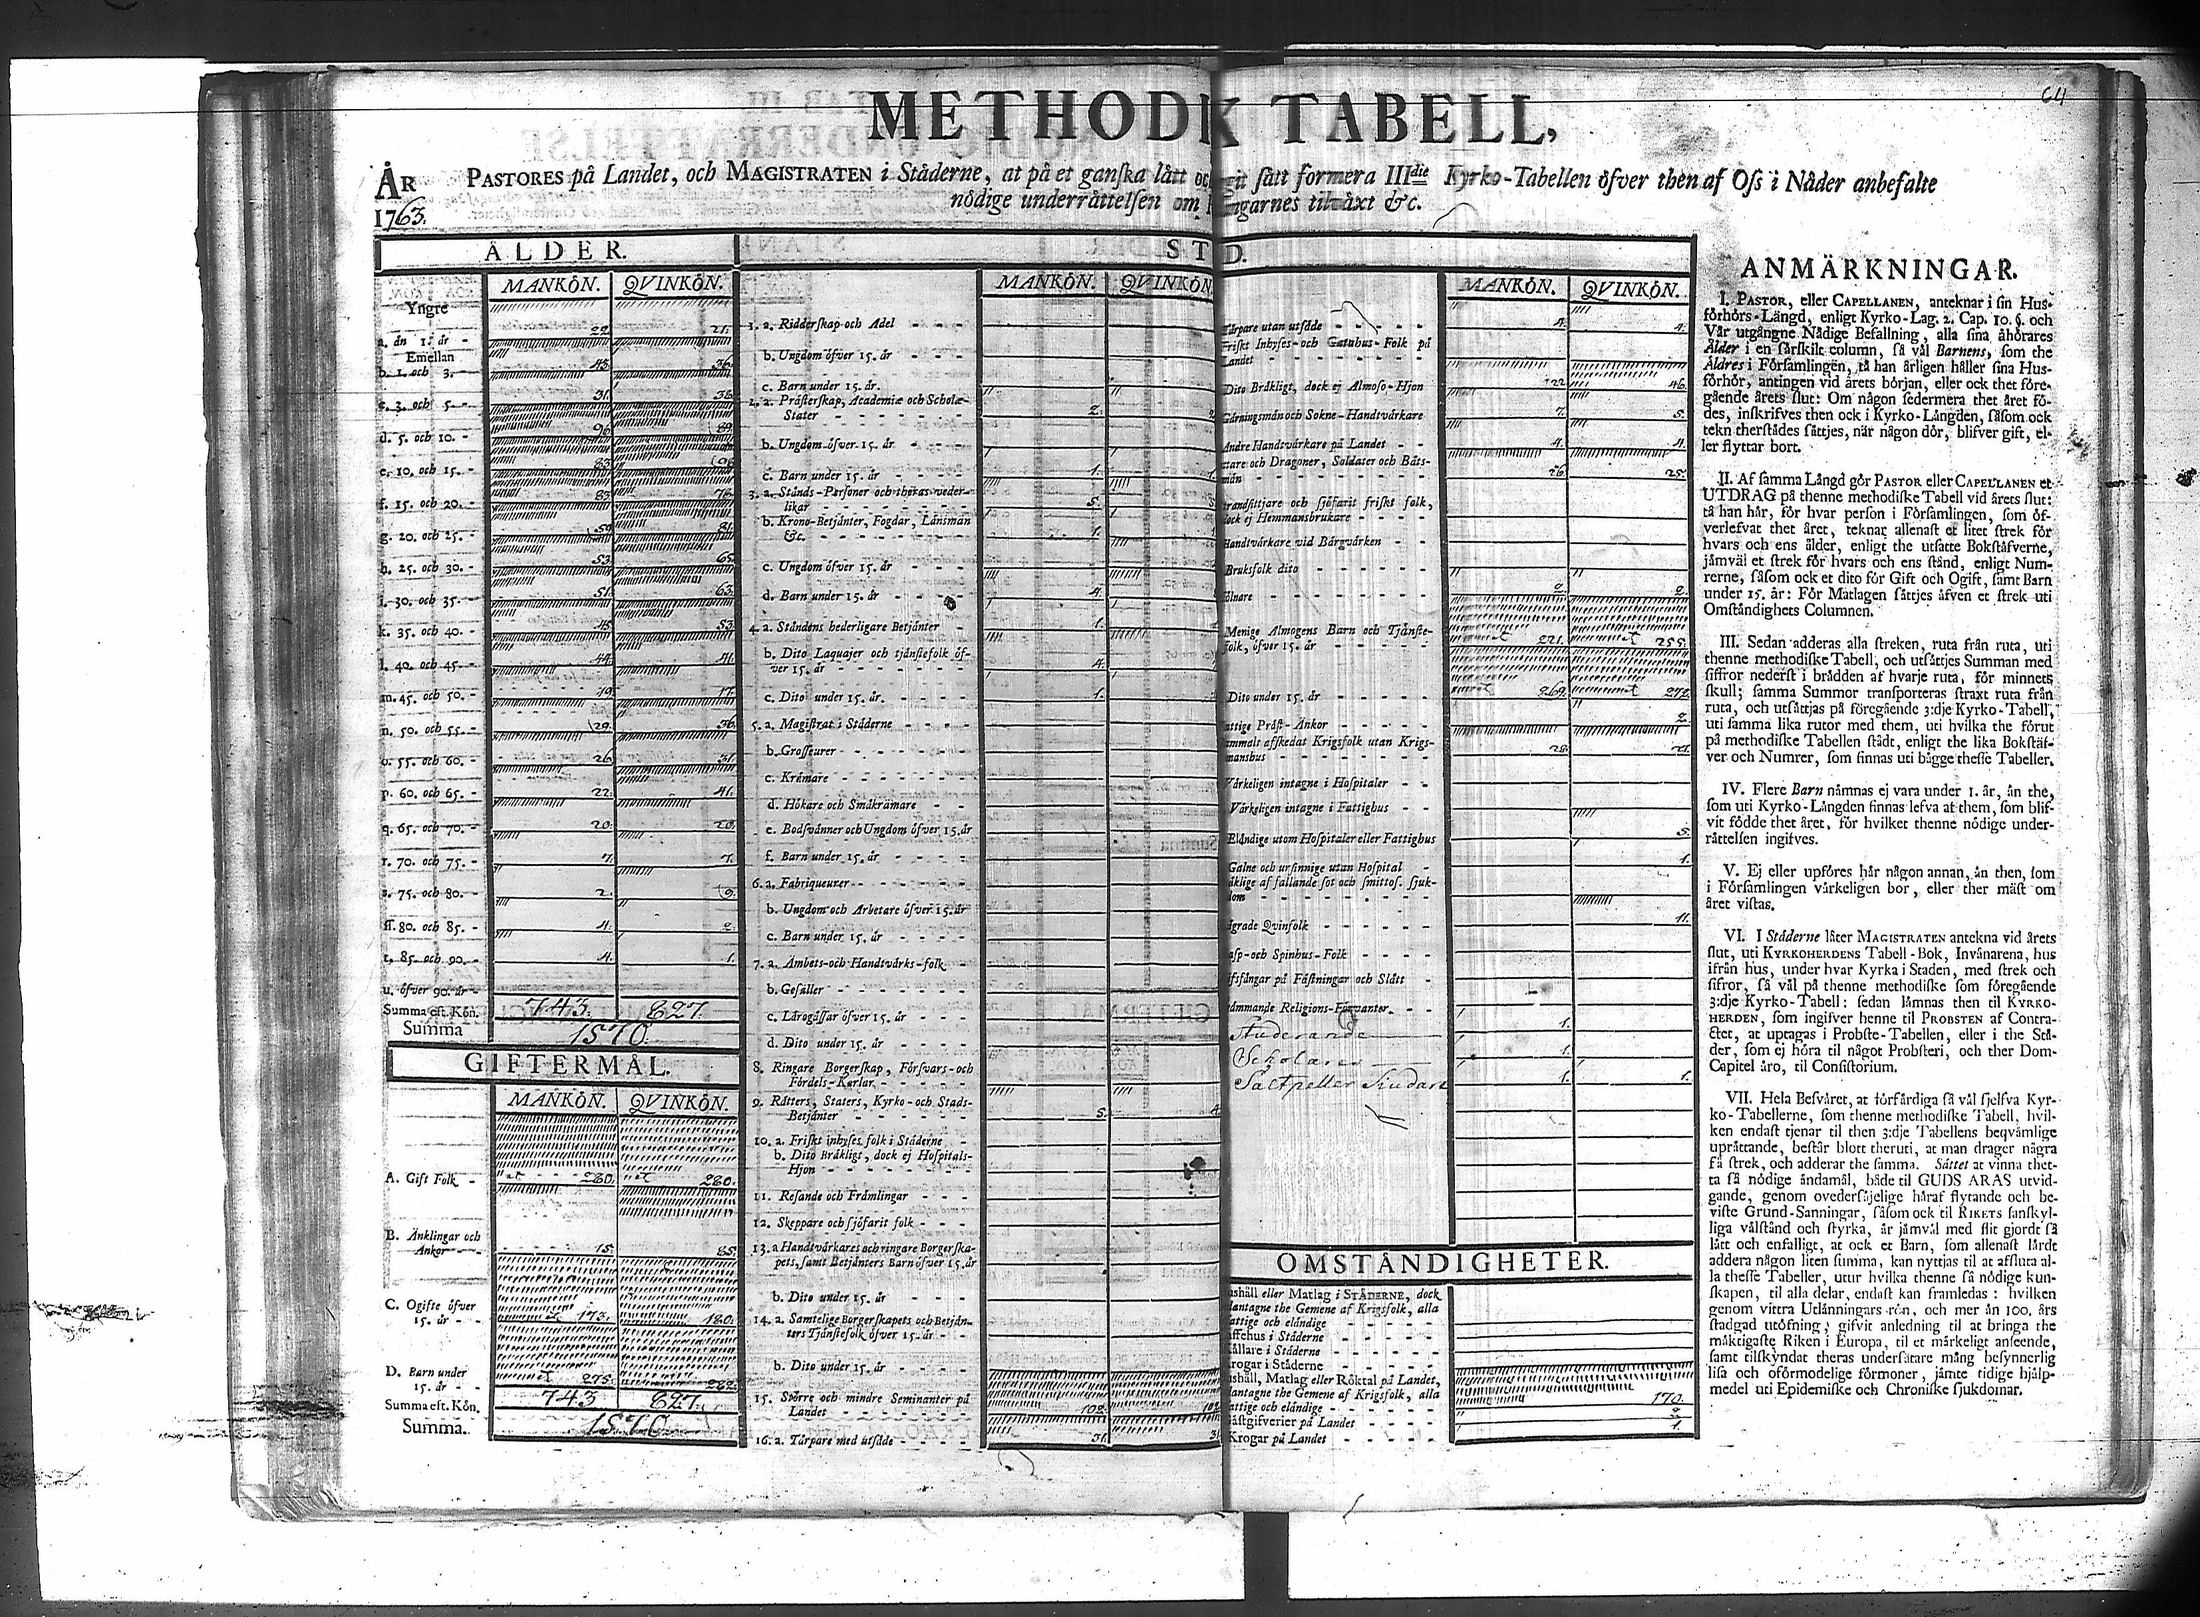 64
METHODK TABELL,
ÅR
1763.
PASTORES på Landet, och MAGISTRATEN i Städerne, at på et ganska lätt oc git sätt formera IIIdie Kyrko-Tabellen öfver then af Oss i Nåder anbefalte
nödige underrättelsen om garnes tilväxt &c.
ÅLDER.
MANKÖN. QVINKÖN.
Yngre
a. än 1. år - 22. 21.
Emellan
b. 1. och 3. - 43. 36.
c. 3. och 5. - 31. 38.
d. 5. och 10. - 96. 89.
e. 10. och 15. - 83.
f. 15. och 20. - 83. 76.
g. 20. och 25. - 59. 81.
h. 25. och 30. - 53. 65.
i. 30. och 35. - 51. 63.
k. 35. och 40. - 45. 53.
l. 40. och 45. - 44. 41.
m. 45. och 50. - 19. 17.
n. 50. och 55. - 29. 36.
o. 55. och 60. - 26. 31.
p. 60. och 65. - 22. 41.
q. 65. och 70. - 20. 20.
r. 70. och 75. - 7. 7.
s. 75. och 80. - 2. 9.
ss. 80. och 85. - 4. 2.
t. 85. och 90. - 4. 1.
u. öfver 90. år -
Summa eft. Kön. 743. 827.
Summa 1570.
GIFTERMÅL.
MANKÖN. QVINKÖN.
A. Gift Folk - 280. 280.
B. Änklingar och
Änkor - - 15. 85.
C. Ogifte öfver
15. år - - 173. 180.
D. Barn under
15. år - - 275. 282.
Summa eft. Kön. 743 827.
Summa. 1570
ST D.
MANKÖN. QVINKÖN
1. a. Ridderskap och Adel - - - -
b. Ungdom öfver 15. år - - - -
c. Barn under 15. år. - - - -
2. a. Prästerskap, Academiæ och Scholæ-
Stater - - - - 2. 2
b. Ungdom öfver 15. år - - - -
c. Barn under 15. år - - - - 1. 1.
3. a. Stånds-Personer och theras veder-
likar - - - - 5. 5
b. Krono-Betjänter, Fogdar, Länsmän
&c. - - - - 1. 1
c. Ungdom öfver 15. år - - - -
d. Barn under 15. år - - - - 4.
4. a. Ståndens hederligare Betjänter - 1.
b. Dito Laquajer och tjänstefolk öf-
ver 15. år - - - - 4.
c. Dito under 15. år. - - - - 1.
5. a. Magistrat i Städerne - - - -
b. Grosseurer - - - -
c. Krämare - - - -
d. Hökare och Småkrämare - - -
e. Bodsvänner och Ungdom öfver 15. år
f. Barn under 15. år - - - -
6. a. Fabriqueurer - - - -
b. Ungdom och Arbetare öfver 15. år
c. Barn under 15. år - - - -
7. a. Ämbets-och Handtvärks-folk -
b. Gesäller - - - -
c. Lärogåssar öfver 15. år - - -
d. Dito under 15. år - - - -
8. Ringare Borgerskap, Försvars-och
Fördels-Karlar - - - -
9. Rätters, Staters, Kyrko-och Stads-
Betjänter - - - - 5. 4
10. a. Friskt inhyses folk i Städerne -
b. Dito Bräkligt, dock ej Hospitals-
Hjon - - - -
11. Resande och Främlingar - - -
12. Skeppare och sjöfarit folk - - -
13. a Handtvärkares och ringare Borgerska-
pets, samt Betjänters Barn öfver 15. år
b. Dito under 15. år - - - -
14. a. Samtelige Borgerskapets och Betjän-
ters Tjänstefolk öfver 15. år - -
b. Dito under 15. år - - - -
15. Större och mindre Seminanter på
Landet - - - - 102. 102
16. a. Tårpare med utsäde - - - - 31. 3
MANKÖN. QVINKÖN.
Tårpare utan utsäde - - - - 4. 4.
Friskt Inhyses-och Gatuhus-Folk på
Landet - - - -
Dito Bräkligt, dock ej Almoso-Hjon 22. 46.
Gärningsmän och Sokne-Handtvärkare 7. 5.
Andre Handtvärkare på Landet - - 4. 4.
ttare och Dragoner, Soldater och Båts-
män - - - - 26. 25.
trandsittjare och sjöfarit friskt folk,
dock ej Hemmansbrukare - - - -
Handtvärkare vid Bärgvärken - -
Bruksfolk dito - - - -
ölnare - - - - 2. 2.
Menige Almogens Barn och Tjänste-
folk, öfver 15. år - - - - 221. 255.
Dito under 15. år - - - - 269. 272.
attige Präst-Änkor - - - - 2.
ammalt afskedat Krigsfolk utan Krigs-
manshus - - - - 28. 21.
Värkeligen intagne i Hospitaler - -
Värkeligen intagne i Fattighus - -
Eländige utom Hospitaler eller Fattighus 5.
Galne och ursinnige utan Hospital - 1.
äklige af fallande sot och smittos. sjuk-
dom - - - -
ägrade Qvinfolk - - - - 11.
asp-och Spinhus-Folk - - -
ifsfångar på Fästningar och Slätt -
rämmande Religions-Förvanter. - -
Studerande 1.
Scholares 1.
Saltpetter Siudare 1. 1.
OMSTÄNDIGHETER.
ushåll eller Matlag i STÄDERNE, dock
dantagne the Gemene af Krigsfolk, alla
attige och eländige - - - -
affehus i Städerne - - - -
ällare i Städerne - - - -
rogar i Städerne - - - -
ushåll, Matlag eller Röktal på Landet,
dantagne the Gemene af Krigsfolk, alla
attige och eländige - - - - 170.
ästgifverier på Landet - - - 2
Krogar på Landet - - - - 1.
ANMÄRKNINGAR.
I. PASTOR, eller CAPELLANEN, anteknar i sin Hus-
förhörs-Längd, enligt Kyrko-Lag. 2. Cap. 10. §. och
Vår utgångne Nådige Befallning, alla sina åhörares
Ålder i en särskilt column, så väl Barnens, som the
Äldres i Församlingen, tå han årligen håller sina Hus-
förhör, antingen vid årets början, eller ock thet före-
gående årets slut: Om någon sedermera thet året fö-
des, inskrifves then ock i Kyrko-Längden, såsom ock
tekn therstädes sättjes, när någon dör, blifver gift, el-
ler flyttar bort.
II. Af samma Längd gör PASTOR eller CAPELLANEN et
UTDRAG på thenne methodiske Tabell vid årets slut:
tå han här, för hvar person i Församlingen, som öf-
verlefvat thet året, teknar allenast et litet strek för
hvars och ens ålder, enligt the utsatte Bokstäfverne,
jämväl et strek för hvars och ens stånd, enligt Num-
rerne, såsom ock et dito för Gift och Ogift, samt Barn
under 15. år: För Matlagen sättjes äfven et strek uti
Omständighets Columnen.
III. Sedan adderas alla streken, ruta från ruta, uti
thenne methodiske Tabell, och utsättjes Summan med
siffror nederst i brädden af hvarje ruta, för minnets
skull; samma Summor transporteras straxt ruta från
ruta, och utsättjas på föregående 3:dje Kyrko-Tabell,
uti samma lika rutor med them, uti hvilka the förut
på methodiske Tabellen städt, enligt the lika Bokstäf-
ver och Numrer, som finnas uti bägge thesse Tabeller.
IV. Flere Barn nämnas ej vara under 1. år, än the,
som uti Kyrko-Längden finnas lefva af them, som blif-
vit födde thet året, för hvilket thenne nödige under-
rättelsen ingifves.
V. Ej eller upföres här någon annan, än then, som
i Församlingen värkeligen bor, eller ther mäst om
året vistas.
VI. I Städerne låter MAGISTRATEN antekna vid årets
slut, uti KYRKOHERDENS Tabell-Bok, Invånarena, hus
ifrån hus, under hvar Kyrka i Staden, med strek och
sifror, så väl på thenne methodiske som föregående
3:dje Kyrko-Tabell: sedan lämnas then til KYRKO-
HERDEN, som ingifver henne til PROBSTEN af Contra-
ctet, at uptagas i Probste-Tabellen, eller i the Stä-
der, som ej höra til något Probsteri, och ther Dom-
Capitel äro, til Consistorium.
VII. Hela Besväret, at förfärdiga så väl sjelfva Kyr-
ko-Tabellerne, som thenne methodiske Tabell, hvil-
ken endast tjenar til then 3:dje Tabellens beqvämlige
uprättande, består blott theruti, at man drager några
få strek, och adderar the samma. Sättet at vinna thet-
ta så nödige ändamål, både til GUDS ÄRAS utvid-
gande, genom ovedersäjelige häraf flytande och be-
viste Grund-Sanningar, såsom ock til RIKETS sanskyl-
liga välstånd och styrka, är jämväl med flit gjordt så
lätt och enfalligt, at ock et Barn, som allenast lärdt
addera någon liten summa, kan nyttjas til at afsluta al-
la thesse Tabeller, utur hvilka thenne så nödige kun-
skapen, til alla delar, endast kan framledas: hvilken
genom vittra Utlänningars rön, och mer än 100. års
stadgad utöfning, gifvit anledning til at bringa the
mäktigaste Riken i Europa, til et märkeligt anseende,
samt tilskyndat theras undersåtare mång besynnerlig
lisa och oförmodelige förmoner, jämte tidige hjälp-
medel uti Epidemiske och Chroniske sjukdomar.